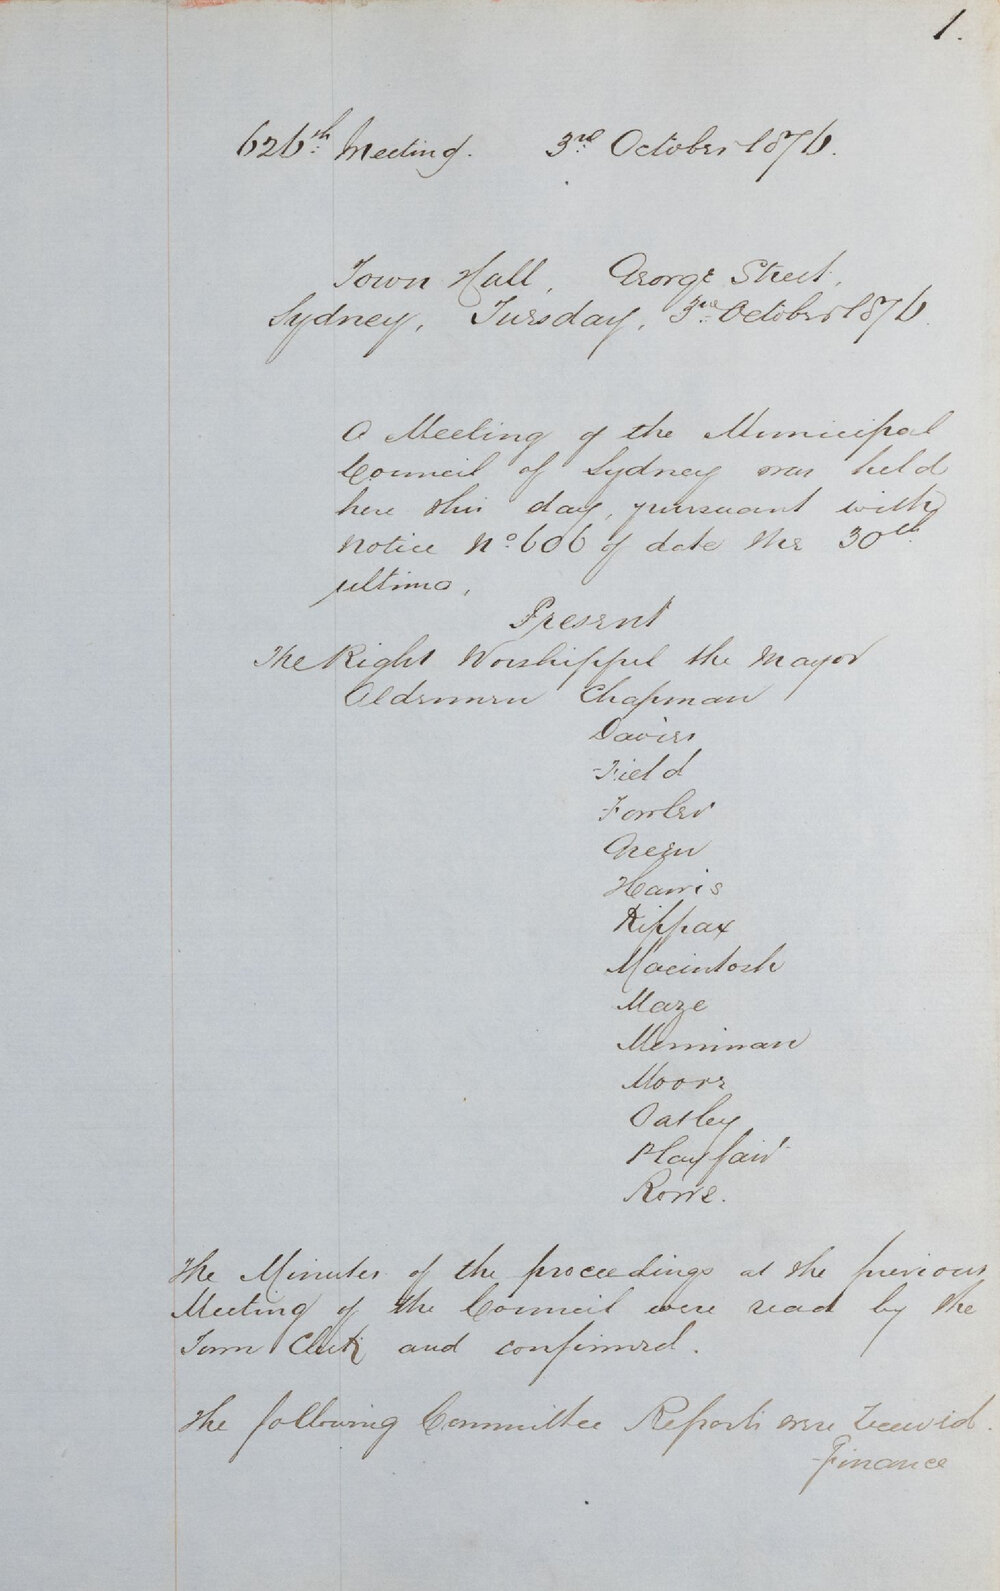 1.
626th Meeting. 3rd October 1876.
Town Hall, George Street,
Sydney, Tuesday, 3rd October 1876.
A Meeting of the Municipal
Council of Sydney was held
here this day, pursuant with
notice No. 606 of date the 30th
ultimo,
Present
The Right Worshipful the Mayor
Aldermen Chapman
Davies
Field
Fowler
Green
Harris
Kippax
Macintosh
Maze
Merriman
Moore
Oatley
Playfair
Rowe.
The Minutes of the proceedings at the previous
Meeting of the Council were read by the
Town Clerk and confirmed.
The following Committee Reports were received.
Finance